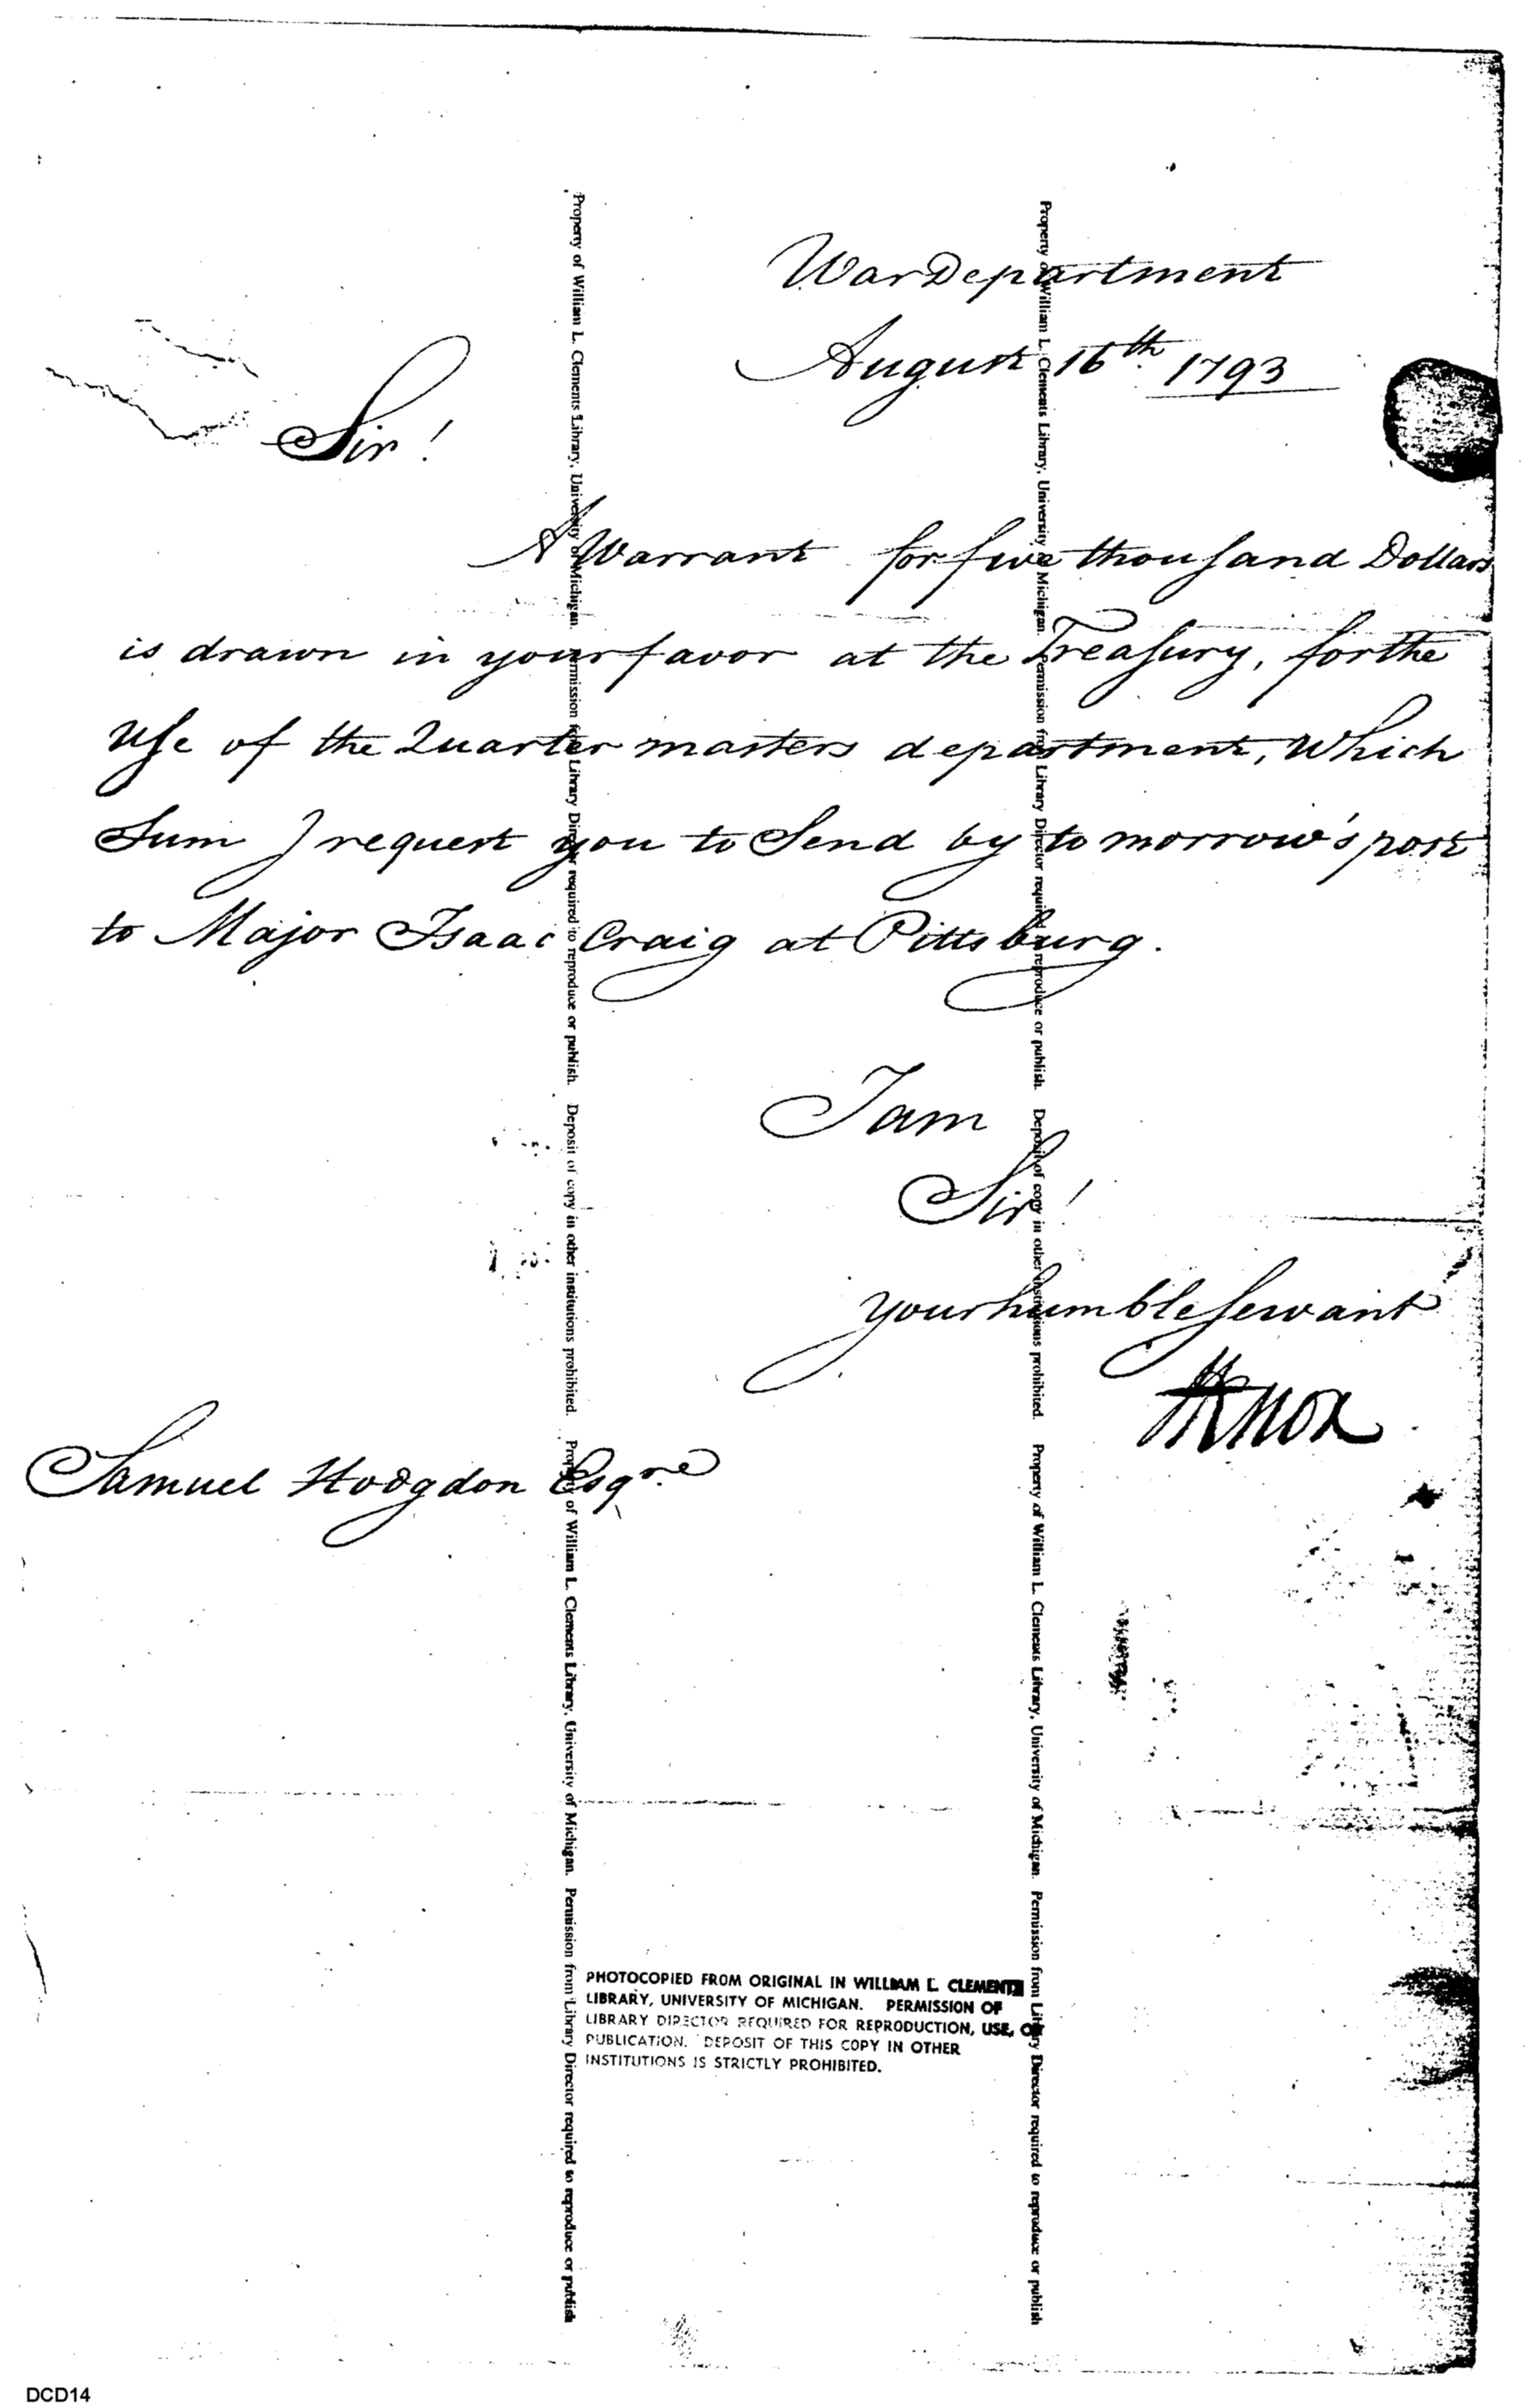 War Department
August 16th 1793
Sir!
A Warrant for five thousand Dollars
is drawn in your favor at the Treasury, for the
Use of the Quarter masters department, Which
Sum I request you to Send by to morrow's post
to Major Isaac Craig at Pittsburg.
I am
Sir!
your humble Servant
HKnox
Samuel Hodgdon Esqre
Property of William L. Clements Library, University of Michigan. Permission from Library Director required to reproduce or publish. Deposit of copy in other institutions prohibited. Property of William L. Clements Library, University of Michigan. Permission from Library Director required to reproduce or publish
Property of William L. Clements Library, University of Michigan. Permission from Library Director required to reproduce or publish. Deposit of copy in other institutions prohibited. Property of William L. Clements Library, University of Michigan. Permission from Library Director required to reproduce or publish
PHOTOCOPIED FROM ORIGINAL IN WILLIAM L. CLEMENTS
LIBRARY, UNIVERSITY OF MICHIGAN. PERMISSION OF
LIBRARY DIRECTOR REQUIRED FOR REPRODUCTION, USE, OR
PUBLICATION. DEPOSIT OF THIS COPY IN OTHER
INSTITUTIONS IS STRICTLY PROHIBITED.
DCD14